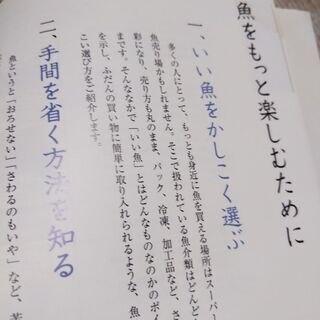 魚をもっと楽しむために
一、いい魚をかしこく選ぶ
多くの人にとって、もっとも身近に魚を買える場所はスーパー
魚売り場かもしれません。そこで扱われている魚介類はどんど
彩になり、売り方も丸のまま、パック、冷凍、加工品など、さ
まです。そんななかで「いい魚」とはどんなものなのかのポイ
を示し、ふだんの買い物に簡単に取り入れられるような、魚
こい選び方をご紹介します。
二、手間を省く方法を知る
魚というと「おろせない」「さわるのもいや」など、苦